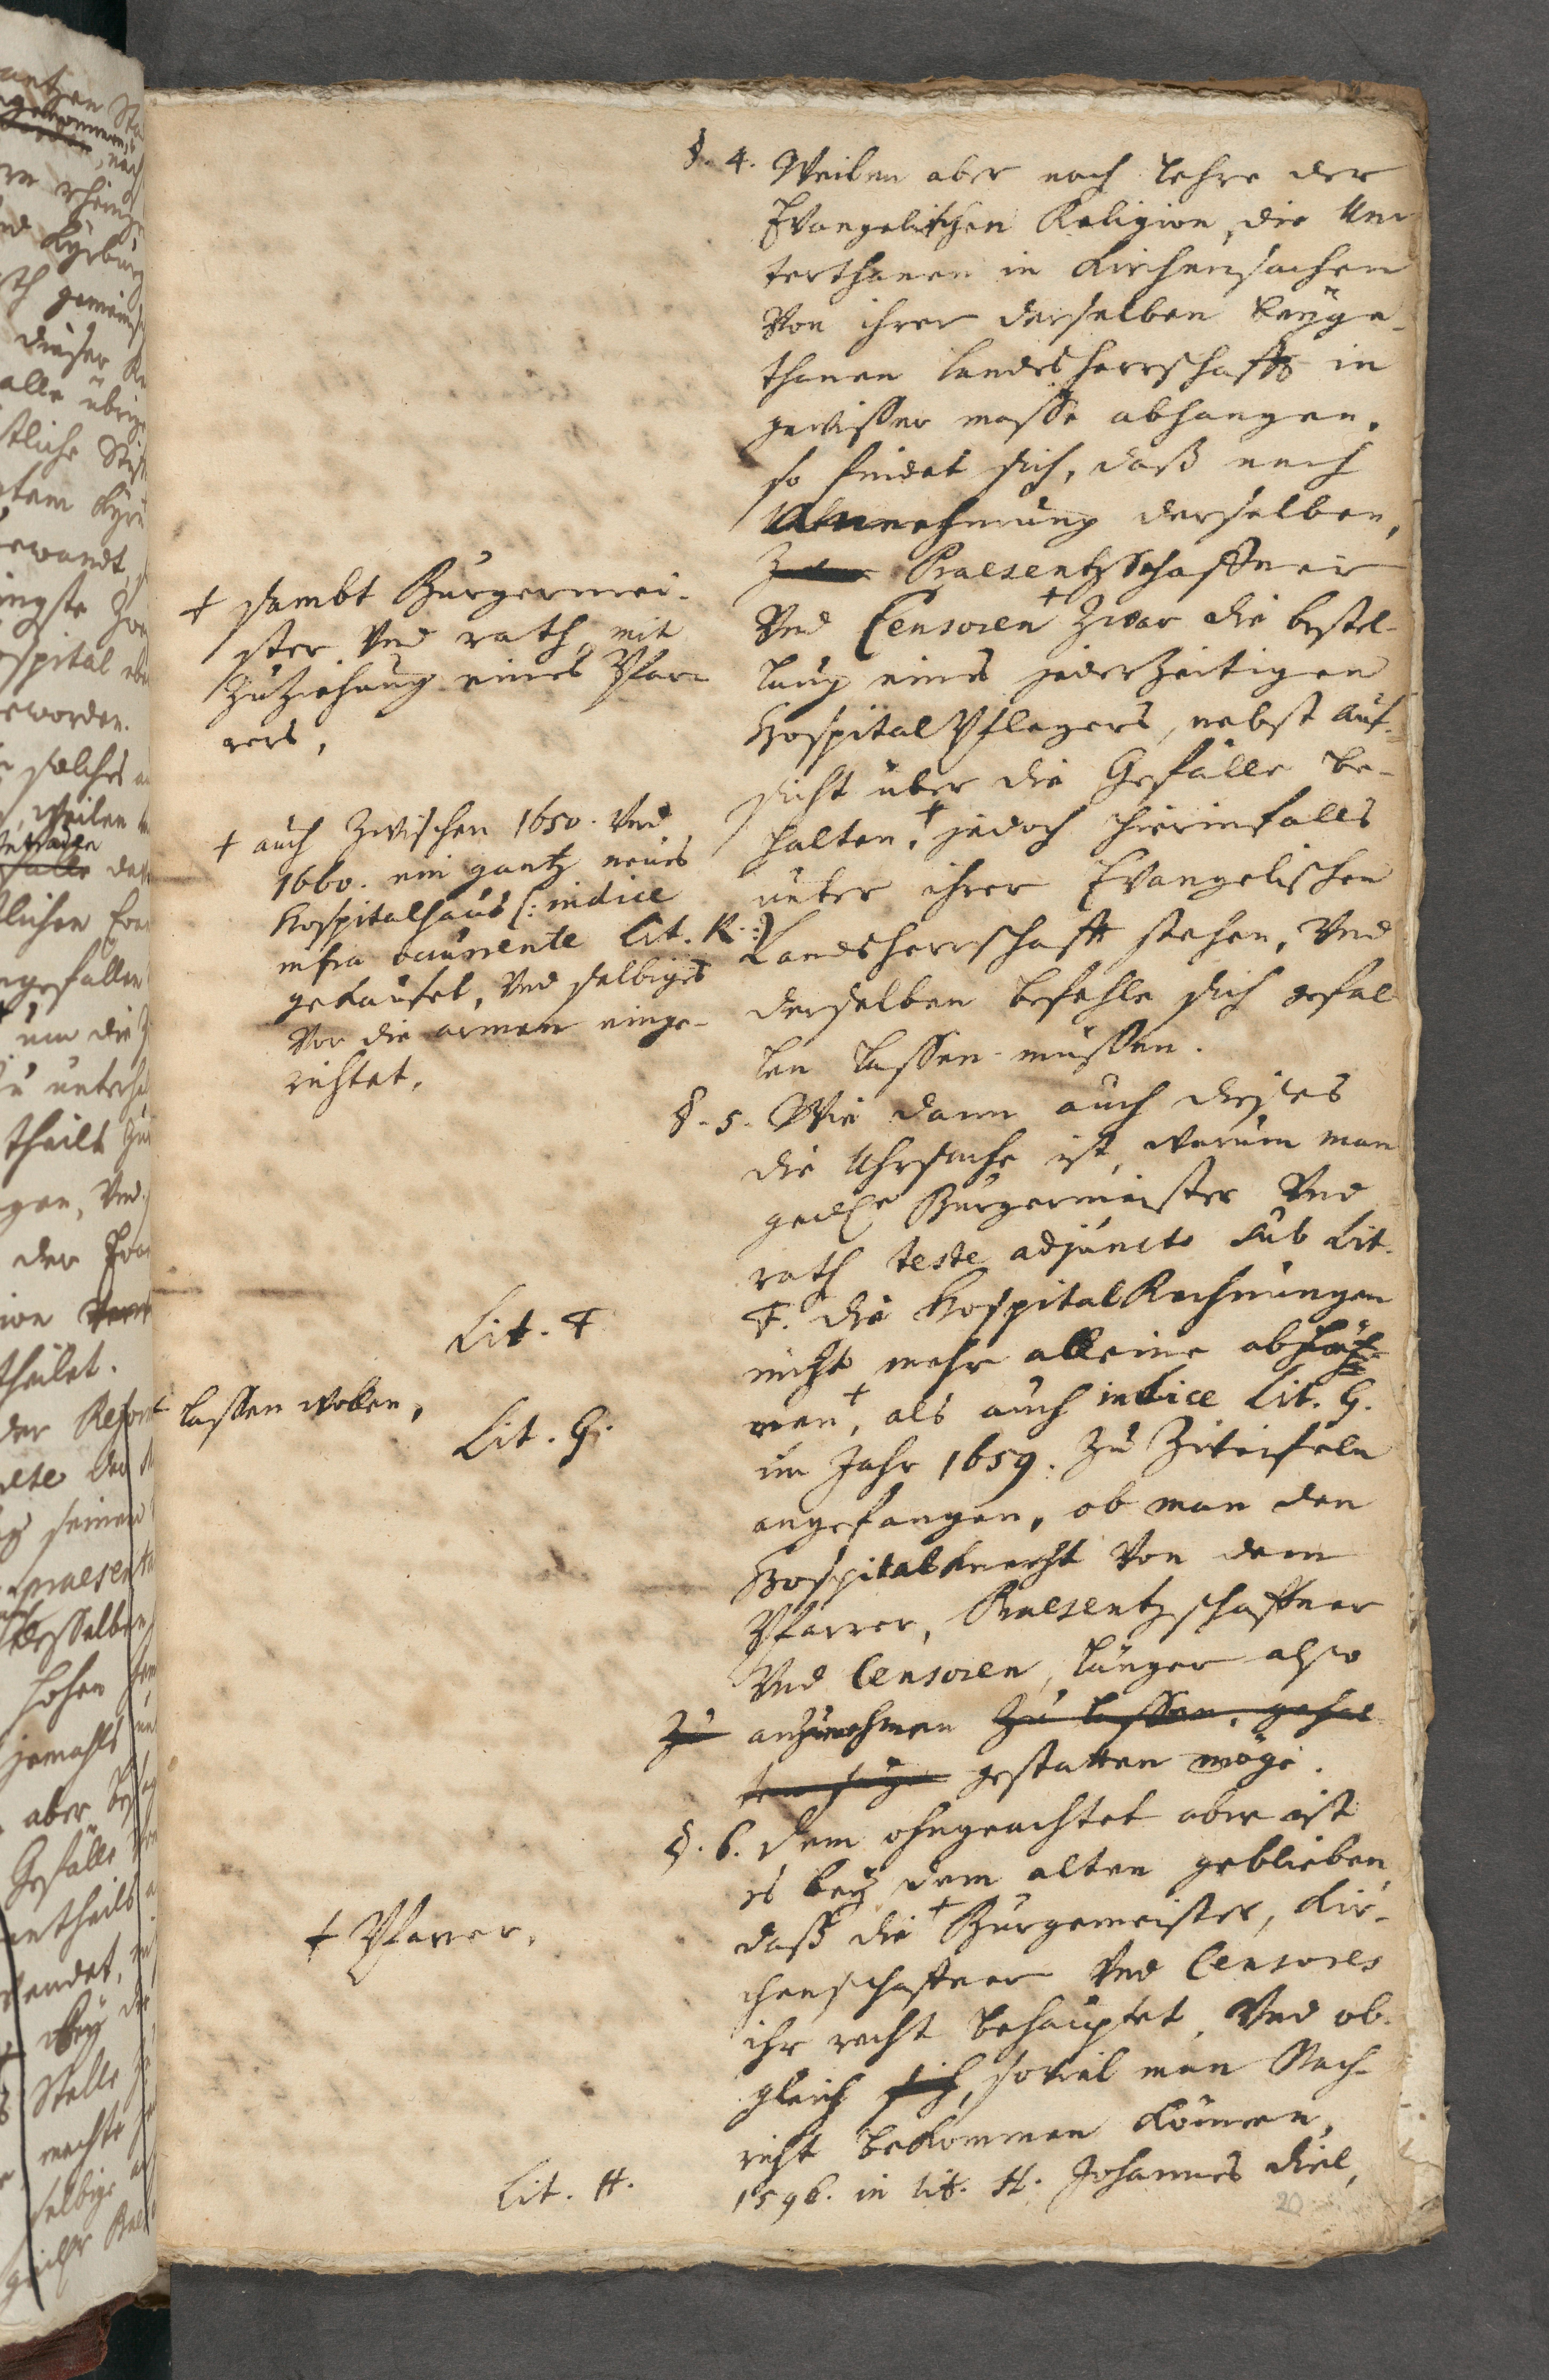 §. 4. Weilen aber nach lehre der
Evangelischen Religion, die Un-
terthanen in Kirchensachen
Von ihrer derselben beyge-
thanen landesherrschafft in
gewisser masse abhangen,
so findet sich, daß nach
Annehmung derselben,
Praesentzschaffner
Vnd Censoren + Zwar die bestel-
lung eines jederzeitigen
HospitalPflegers, nebst auf-
sicht über die Gefälle be-
halten, + jedoch hierinfalls
unter ihrer Evangelischen
Landsherrschafft stehen, Vnd
derselben befehle sich gefal-
len lassen müssen.
+ sambt Burgermei-
ster Vnd rath, mit
Zuziehung eines Pfar-
rers,
+ auch Zwischen 1650. Vnd
1660. ein gantz neues
Hospitalhaus (: indice
infra Lit. K. :)
gekaufet, Vnd selbiges
Vor die armen einge-
richtet.
§. 5. Wie dann auch dieses
die Uhrsache ist, warum man
Burgermeister Vnd
rath teste adjuncto sub Lit.
F. die HospitalRechnungen
nicht mehr alleine abhö-
ren +, als auch indice Lit. G.
im Jahr 1659. Zu Zweifeln
angefangen, ob man den
Hospitalknecht Von dem
Pfarrer, Praesentzschaffner
Vnd Censoren, länger also
zu anzunehmen zu lassen, gehal-
gestatten möge.
Lit. F
+ lassen wollen,
Lit. G.
§. 6. Dem ohngeachtet aber ist
es bey dem alten geblieben
daß die + Burgemeister, Kir-
chenschaffner Vnd Censores
ihr recht behauptet, Vnd ob-
gleich sich, soviel man Nach-
richt bekommen können,
1596. in lit. H. Johannes Diel,
+ Pfarrer,
Lit. H.
20